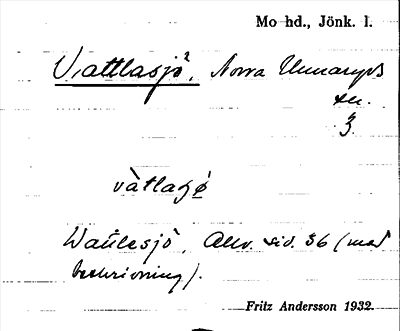 Mo hd., Jönk. l.
Vattlasjö, Norra Unnaryds
sn.
3.
våtlasjø
Watlesjö, Allv. sid. 36 (med
beskrivning).
Fritz Andersson 1932.